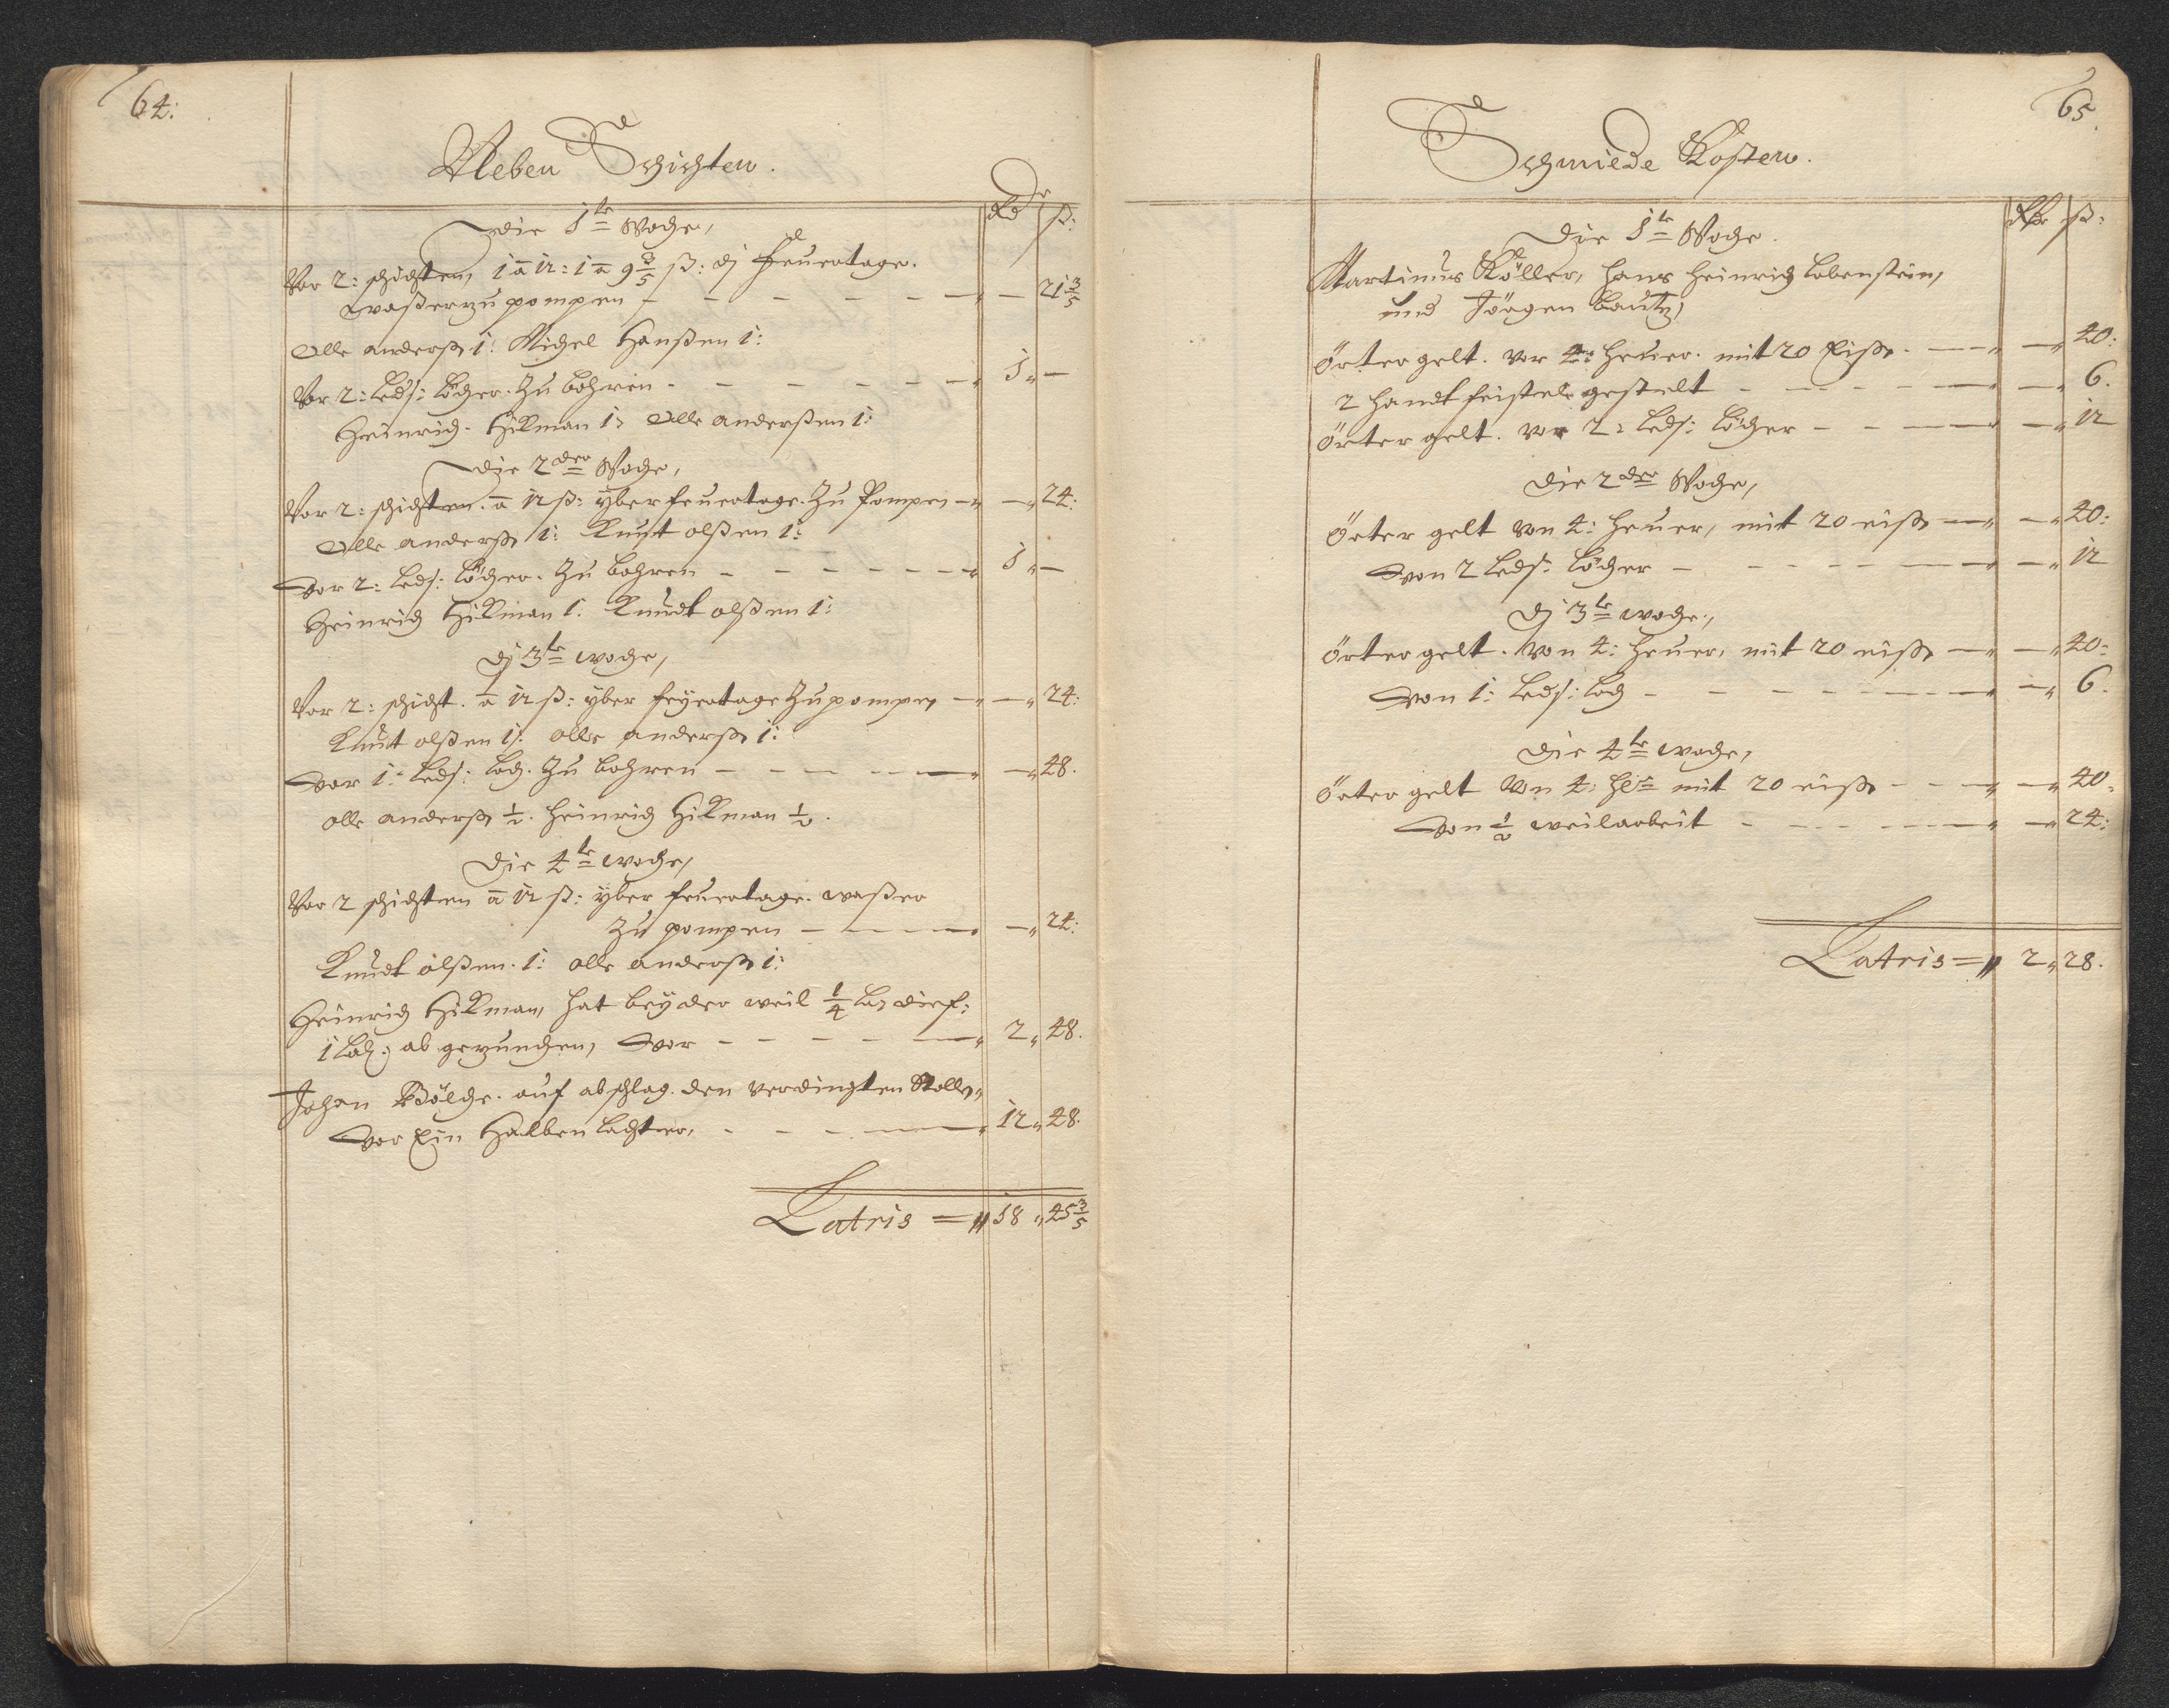 64:
Neben Schichten.
Rd ß:
Die 1te Woche,
Vor 2: schichten, 1 a 12: 1 a 9 3/5 ß: dj feuertage.
waßer zu pompen - - - - - - " — 21 3/5
Olle anderß 1: Michel Hanßen 1:
Vor 2: Leds: Löcher. Zu bohren - - - - - - " 1 " —
Heinrich Hikman 1: Olle anderßen 1:
Die 2der Woche,
Vor 2: schichten. a 12 ß: yber feuertage. Zu Pompen — " — " 24:
Olle anderß 1: Knut olßen 1:
Vor 2: Leds: Löcher. Zu bohren - - - - - - " 1 " —
Heinrich Hikman 1. Knudt olßen 1:
Dj 3te woche,
Vor 2: schicht. a 12 ß: yber feyertage Zu pompen — " — " 24:
Knut olßen 1: olle anderß 1:
Vor 1: Leds: Loch. Zu bohren - - - - - " — " 48.
olle anderß 1/2. heinrich Hikman 1/2.
Die 4te woche,
Vor 2 schichten a 12 ß: yber feuertage. waßer
Zu pompen - - - - " — " 24:
Knudt olßen. 1: olle anderß 1:
Heinrich Hikman, hat bey der weil 1/4 dief:
1 Lach: ab gesuncken, Vor - - - - - " 2 " 48.
Johan auf abschlag. den verdingten Stollen
Vor Ein Halben Lachter, - - - - " 12 " 48.
Latris = " 18 " 45 3/5
65.
Schmiede Kosten.
Rd ß:
Die 1te Woche.
Martinus Köller, Hans Heinrich Lobenstein,
und Jörgen Bautz,
Örter gelt. Vor 4: heuer. mit 20 Eißen — " — " 40:
2 handt feistel gestelt - - - - " — " 6.
Örter gelt. Vor 2: Leds: Löcher - - — " — " 12
Die 2der Woche,
Örter gelt von 4: heuer, mit 20 eißen — " — " 40:
Von 2 Leds: Löcher - - - - - " — " 12
Dj 3te woche,
Örter gelt. Von 4: heuer, mit 20 eißen — " — " 40:
Von 1: Leds: Loch - - - - - - " — " 6.
Die 4te woche,
Örter gelt Von 4: mit 20 eißen - - - " — " 40.
Von 1/2 weilarbeit - - - - - " — " 24:
Latris = " 2 " 28.